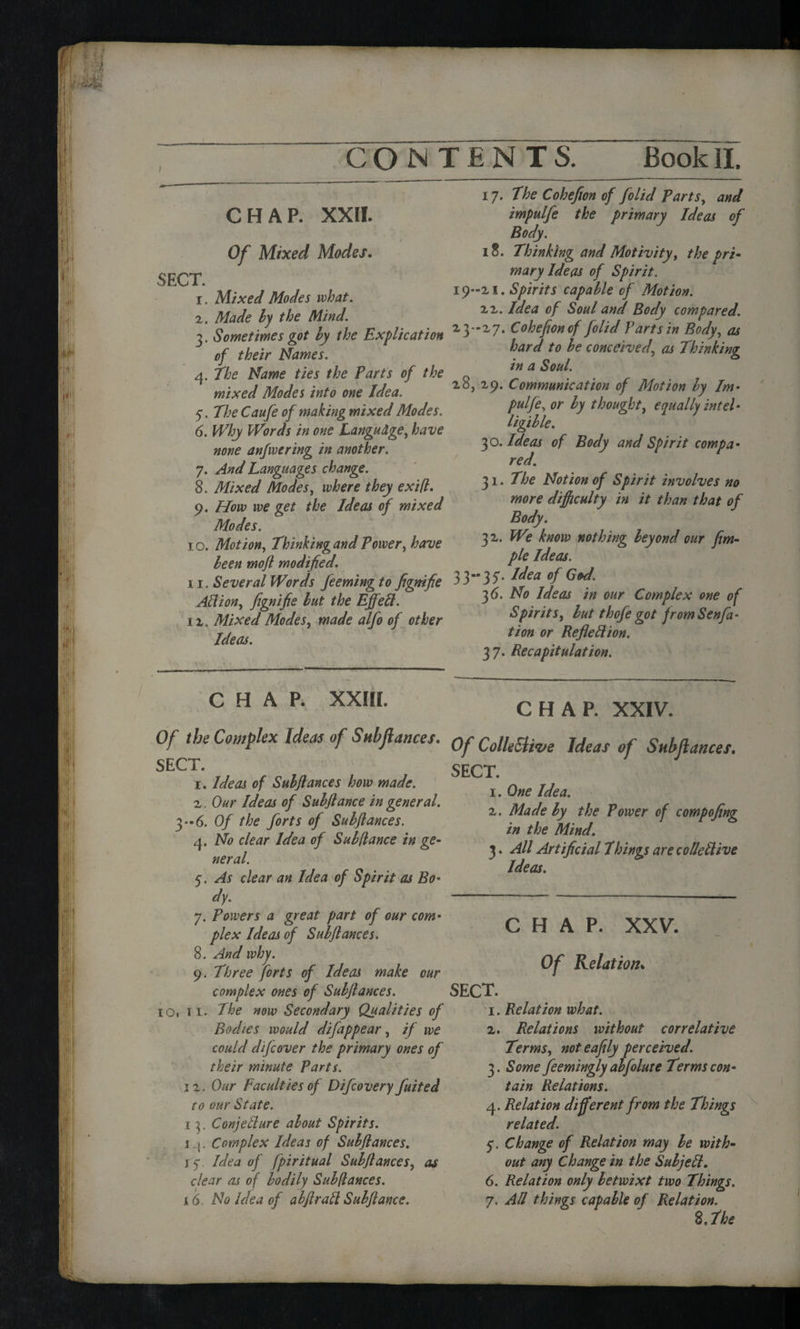 CONTENTS. Book II.
CHAP. XXII.
Of Mixed Modes.
SECT.
1. Mixed Modes what.
2. Made by the Mind.
3. Sometimes got by the Explication
of their Names.
4. The Name ties the Parts of the
mixed Modes into one Idea.
5. The Cauſe of making mixed Modes.
6. Why Words in one Language, have
none anſwering in another.
7. And Languages change.
8. Mixed Modes, where they exiſt.
9. How we get the Ideas of mixed
Modes.
10. Motion, Thinking and Power, have
been moſt modified.
11. Several Words ſeeming to ſignifie
Action, ſignifie but the Effect.
12. Mixed Modes, made alſo of other
Ideas.
CHAP. XXIII.
Of the Complex Ideas of Subſtances.
SECT.
1. Ideas of Subſtances how made.
2. Our Ideas of Subſtance in general.
3--6. Of the ſorts of Subſtances.
4. No clear Idea of Subſtance in ge-
neral.
5. As clear an Idea of Spirit as Bo-
dy.
7. Powers a great part of our com-
plex Ideas of Subſtances.
8. And why.
9. Three ſorts of Ideas make our
complex ones of Subſtances.
10, 11. The now Secondary Qualities of
Bodies would diſappear, if we
could diſcover the primary ones of
their minute Parts.
12. Our Faculties of Diſcovery ſuited
to our State.
13. Conjecture about Spirits.
14. Complex Ideas of Subſtances.
15. Idea of ſpiritual Subſtances, as
clear as of bodily Subſtances.
16. No Idea of abſtract Subſtance.
17. The Coheſion of ſolid Parts, and
impulſe the primary Ideas of
Body.
18. Thinking and Motivity, the pri-
mary Ideas of Spirit.
19--21. Spirits capable of Motion.
22. Idea of Soul and Body compared.
23--27. Coheſion of ſolid Parts in Body, as
hard to be conceived, as Thinking
in a Soul.
28, 29. Communication of Motion by Im-
pulſe, or by thought, equally intel-
ligible.
30. Ideas of Body and Spirit compa-
red.
31. The Notion of Spirit involves no
more difficulty in it than that of
Body.
32. We know nothing beyond our ſim-
ple Ideas.
33--35. Idea of God.
36. No Ideas in our Complex one of
Spirits, but thoſe got from Senſa-
tion or Reflection.
37. Recapitulation.
CHAP. XXIV.
Of Collective Ideas of Subſtances.
SECT.
1. One Idea.
2. Made by the Power of compoſing
in the Mind.
3. All Artificial Things are collective
Ideas.
CHAP. XXV.
Of Relation.
SECT.
1. Relation what.
2. Relations without correlative
Terms, not eaſily perceived.
3. Some ſeemingly abſolute Terms con-
tain Relations.
4. Relation different from the Things
related.
5. Change of Relation may be with-
out any Change in the Subject.
6. Relation only betwixt two Things.
7. All things capable of Relation.
8. The